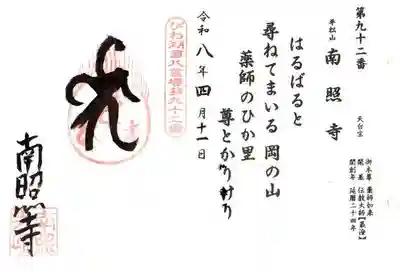 第九十二番
平松山 南照寺 天台宗
御本尊 薬師如来
開基 伝教大師【最澄】
開創年 延暦二十四年
はるばると
尋ねてまいる 岡の山
薬師のひか里
尊とかり計り
令和八年四月十一日
びわ湖百八霊場第九十二番
南照寺